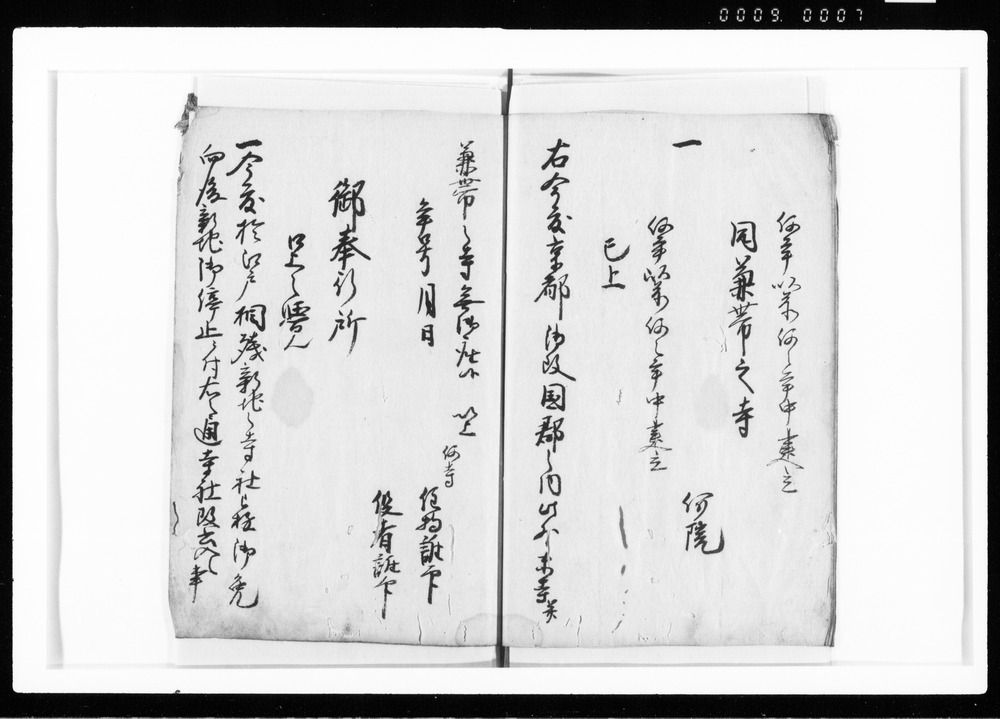 0009. 0007
何年以来何之年中建立
同兼帯之寺
一
何院
何年以来何之年中建立
已上
右今度京都御改国郡之内此外末寺并
兼帯之寺無御座候 以上
年号月日
何寺
住持誰印
役者誰印
御奉行所
口上之覚
一今度於江戸相残新地之寺社被御免
向後新地御停止ニ付右之通寺社改